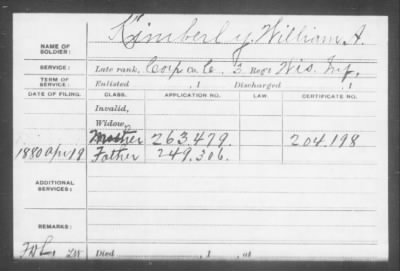 NAME OF SOLDIER: Kimberly, William A.
SERVICE: Late rank, Corp Co. , 3 Reg't Wis. Inf.
TERM OF SERVICE: Enlisted , 1 Discharged , 1
DATE OF FILING. CLASS. APPLICATION NO. LAW. CERTIFICATE NO.
Invalid,
Widow,
Mother 263.479. 204.198
1880 Apr 19 Father 249.306.
ADDITIONAL SERVICES:
REMARKS:
Died , 1 , at